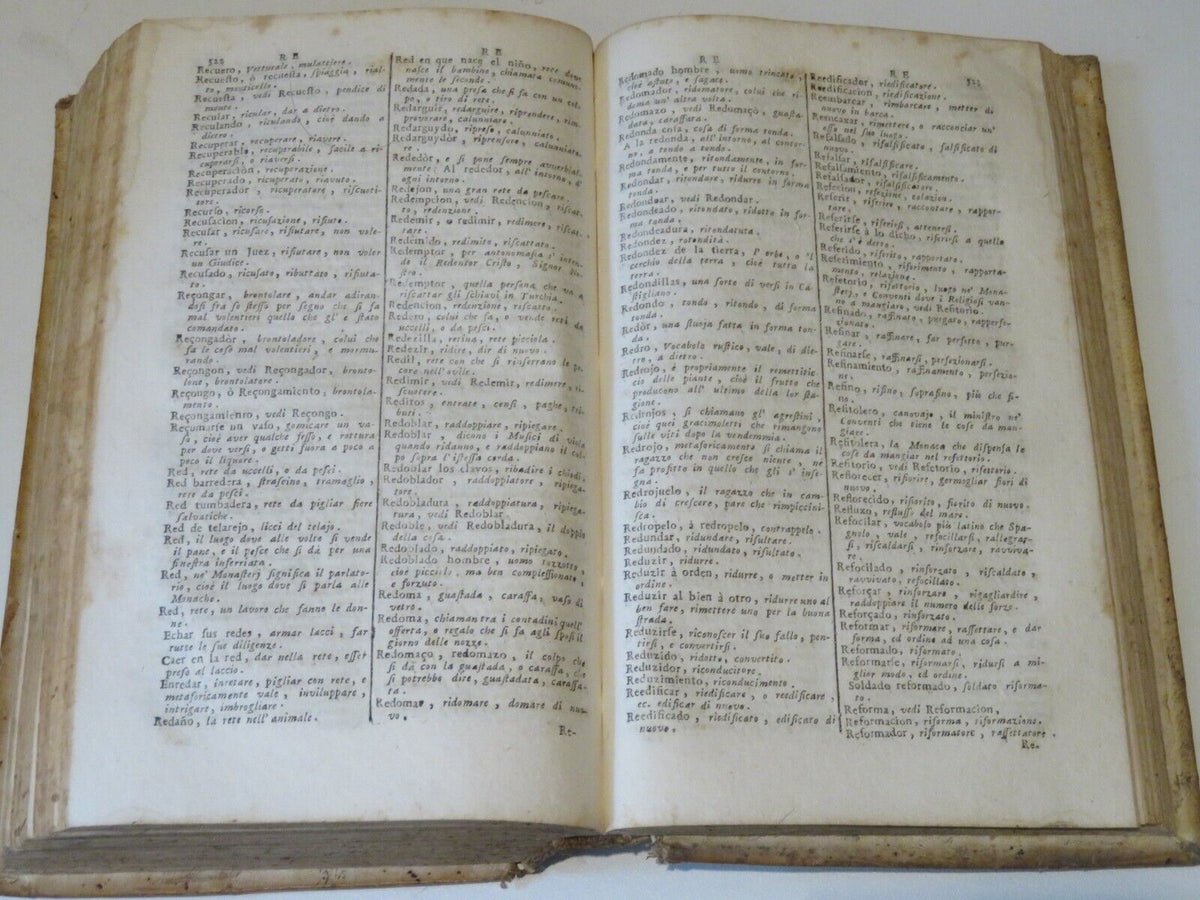 522 R E
Recuero, Vetturale, mulattiere.
Recuesto, ò recuesta, spiaggia, rial-
to, monticello.
Recuesta, vedi Recuesto, pendice di
monte.
Recular, ricular, dar a dietro.
Reculando, riculando, cioè dando a
dietro.
Recuperar, recuperare, riavere.
Recuperable, recuperabile, facile a ri-
cuperarsi, o riaversi.
Recuperacion, recuperazione.
Recuperado, recuperato, riavuto.
Recuperador, ricuperatore, riscuoti-
tore.
Recurso, ricorso.
Recusacion, ricusazione, rifiuto.
Recusar, ricusare, rifiutare, non vole-
re.
Recusar un Juez, rifiutare, non voler
un Giudice.
Recusado, ricusato, ributtato, rifiuta-
to.
Reçongar, brontolare, andar adiran-
dosi fra se stesso per segno che si fa
mal volentieri quello che gl' è stato
comandato.
Reçongador, brontoladore, colui che
fa le cose mal volentieri, e mormo-
rando.
Reçongon, vedi Reçongador, bronto-
lone, brontolatore.
Reçongo, ò Reçongamiento, brontola-
mento.
Reçongamiento, vedi Reçongo.
Reçumarse un vaso, gomicare un va-
so, cioè aver qualche fesso, e rottura
per dove versi, o getti fuora a poco a
poco il liquore.
Red, rete da uccelli, o da pesci.
Red barredera, strascino, tramaglio,
rete da pesci.
Red tumbadera, rete da pigliar fiere
salvatiche.
Red de telarejo, licci del telajo.
Red, il luogo dove alle volte si vende
il pane, e il pesce che si dà per una
finestra inferriata.
Red, ne' Monasterj significa il parlato-
rio, cioè il luogo dove si parla alle
Monache.
Red, rete, un lavoro che fanno le don-
ne.
Echar sus redes, armar lacci, far
tutte le sue diligenze.
Caer en la red, dar nella rete, esser
preso al laccio.
Enredar, inretare, pigliar con rete, e
metaforicamente vale, inviluppare,
intrigare, imbrogliare.
Redaño, la rete nell' animale.
R E
Red en que nace el niño, rete dove
nasce il bambino, chiamata comune-
mente le seconde.
Redada, una presa che si fa con un col-
po, o tiro di rete.
Redarguir, redarguire, riprendere, rim-
proverare, calunniare.
Redarguydo, ripreso, calunniato.
Redarguydor, riprensore, calunniato-
re.
Rededòr, e si pone sempre avverbial-
mente; Al rededor, all' intorno, d'
ogni intorno.
Redejon, una gran rete da pescare.
Redempcion, vedi Redencion, riscat-
to, redenzione.
Redemir, o redimir, redimere, riscat-
tare.
Redemido, redimito, riscattato.
Redemptor, per antonomasia s' inten-
de il Redentor Cristo, Signor No-
stro.
Redemptor, quella persona che va a
riscattar gli schiavi in Turchia.
Redencion, redenzione, riscatto.
Redero, colui che fa, o vende reti da
uccelli, o da pesci.
Redezilla, retina, rete picciola.
Redezir, ridire, dir di nuovo.
Redil, rete con che si rinserrano le pe-
core nell' ovile.
Redimir, vedi Redemir, redimere, ri-
scuotere.
Reditos, entrate, censi, paghe, tri-
buti.
Redoblar, raddoppiare, ripiegare.
Redoblar, dicono i Musici di viola
quando ridanno, e raddoppiano il col-
po sopra l' istessa corda.
Redoblar los clavos, ribadire i chiodi,
Redoblador, raddoppiatore, ripiega-
tore.
Redobladura, raddoppiatura, ripiega-
tura, vedi Redoblar.
Redoble, vedi Redobladura, il doppio
della cosa.
Redoblado, raddoppiato, ripiegato.
Redoblado hombre, uomo tozzotto,
cioè picciolo, ma ben complessionato,
e forzuto.
Redoma, guastada, caraffa, vaso di
vetro.
Redoma, chiaman tra i contadini quell'
offerta, o regalo che si fa agli sposi il
giorno delle nozze.
Redomaço, redomazo, il colpo che
si dà con la guastada, o caraffa, che
si potrebbe dire, guastadata, caraffa-
ta.
Redomar, ridomare, domare di nuo-
vo.
Re-
R E
Redomado hombre, uomo trincato,
cioè astuto, e sagace.
Redomador, ridomatore, colui che ri-
doma un' altra volta.
Redomazo, vedi Redomaço, guasta-
data, caraffata.
Redonda cosa, cosa di forma tonda.
A la redonda, all' intorno, al contor-
no, a tondo a tondo.
Redondamente, ritondamente, in for-
ma tonda, e per tutto il contorno.
Redondar, ritondare, ridurre in forma
tonda.
Redondear, vedi Redondar.
Redondeado, ritondato, ridotto in for-
ma tonda.
Redondeadura, ritondatura.
Redondez, rotondità.
Redondez de la tierra, l' orbe, o 'l
cerchio della terra, cioè tutta la
terra.
Redondillas, una sorte di versi in Ca-
stigliano.
Redondo, tondo, ritondo, di forma
tonda.
Redòr, una stuoja fatta in forma ton-
da.
Redro, Vocabolo rustico, vale, di die-
tro, a dietro.
Redrojo, è propriamente il remetitic-
cio delle piante, cioè il frutto che
producono all' ultimo della lor sta-
gione.
Redrojos, si chiamano gl' agrestini,
cioè quei gracimoletti che rimangono
sulle viti dopo la vendemmia.
Redrojo, metaforicamento si chiama il
ragazzo che non cresce niente, nè
fa profitto in quello che gli s' inse-
gna.
Redrojuelo, il ragazzo che in cam-
bio di crescere, pare che rimpiccini-
sca.
Redropelo, à redropelo, contrappelo.
Redundar, ridundare, risultare.
Redundado, ridundato, risultato.
Reduzir, ridurre.
Reduzir à orden, ridurre, o metter in
ordine.
Reduzir al bien à otro, ridurre uno al
ben fare, rimettere uno per la buona
strada.
Reduzirse, riconoscer il suo fallo, pen-
tirsi, e convertirsi.
Reduzido, ridotto, convertito.
Reduzidor, riconducitore.
Reduzimiento, riconducimento.
Reedificar, riedificare, o reedificare,
ec. edificar di nuovo.
Reedificado, riedificato, edificato di
nuovo.
R E 523
Reedificador, riedificatore.
Reedificacion, riedificazione.
Reembarcar, rimbarcare, metter di
nuovo in barca.
Reencaxar, rimettere, o racconciar un'
osso nel suo luogo.
Refalsado, rifalsificato, falsificato di
nuovo.
Refalsar, rifalsificare.
Refalsamiento, rifalsificamento.
Refalsador, rifalsificatore.
Refecion, refezione, colazion.
Referir, riferire, raccontare, rappor-
tare.
Referirse, riferirsi, attenersi.
Referirse à lo dicho, riferirsi a quello
che s' è detto.
Referido, riferito, rapportato.
Referimiento, riferimento, rapporta-
mento, relazione.
Refetorio, rifettorio, luogo ne' Mona-
sterj, e Conventi dove i Religiosi van-
no a mangiare, vedi Refitorio.
Refinado, raffinato, purgato, rapperfe-
zionato.
Refinar, raffinare, far perfetto, pur-
gare.
Refinarse, raffinarsi, perfezionarsi.
Refinamiento, raffinamento, perfezio-
ne.
Refino, rifino, soprafino, più che fi-
no.
Refitolero, canovajo, il ministro ne'
Conventi che tiene le cose da man-
giare.
Refitolera, la Monaca che dispensa le
cose da mangiar nel refettorio.
Refitorio, vedi Refetorio, rifettorio.
Reflorecer, rifiorire, germogliar fiori di
nuovo.
Reflorecido, rifiorito, fiorito di nuovo.
Refluxo, reflusso del mare.
Refocilar, vocabolo più latino che Spa-
gnolo, vale, refocillarsi, rallegrar-
si, riscaldarsi, rinforzare, ravviva-
re.
Refocilado, rinforzato, riscaldato,
ravvivato, refocillato.
Reforçar, rinforzare, rigagliardire,
raddoppiare il numero delle forze.
Reforçado, rinforzato.
Reformar, riformare, rassettare, e dar
forma, ed ordine ad una cosa.
Reformado, riformato.
Reformarse, riformarsi, ridursi a mi-
glior modo, ed ordine.
Soldado reformado, soldato riforma-
to.
Reforma, vedi Reformacion,
Reformacion, riforma, riformazione.
Reformador, riformatore, rassettatore.
Re-